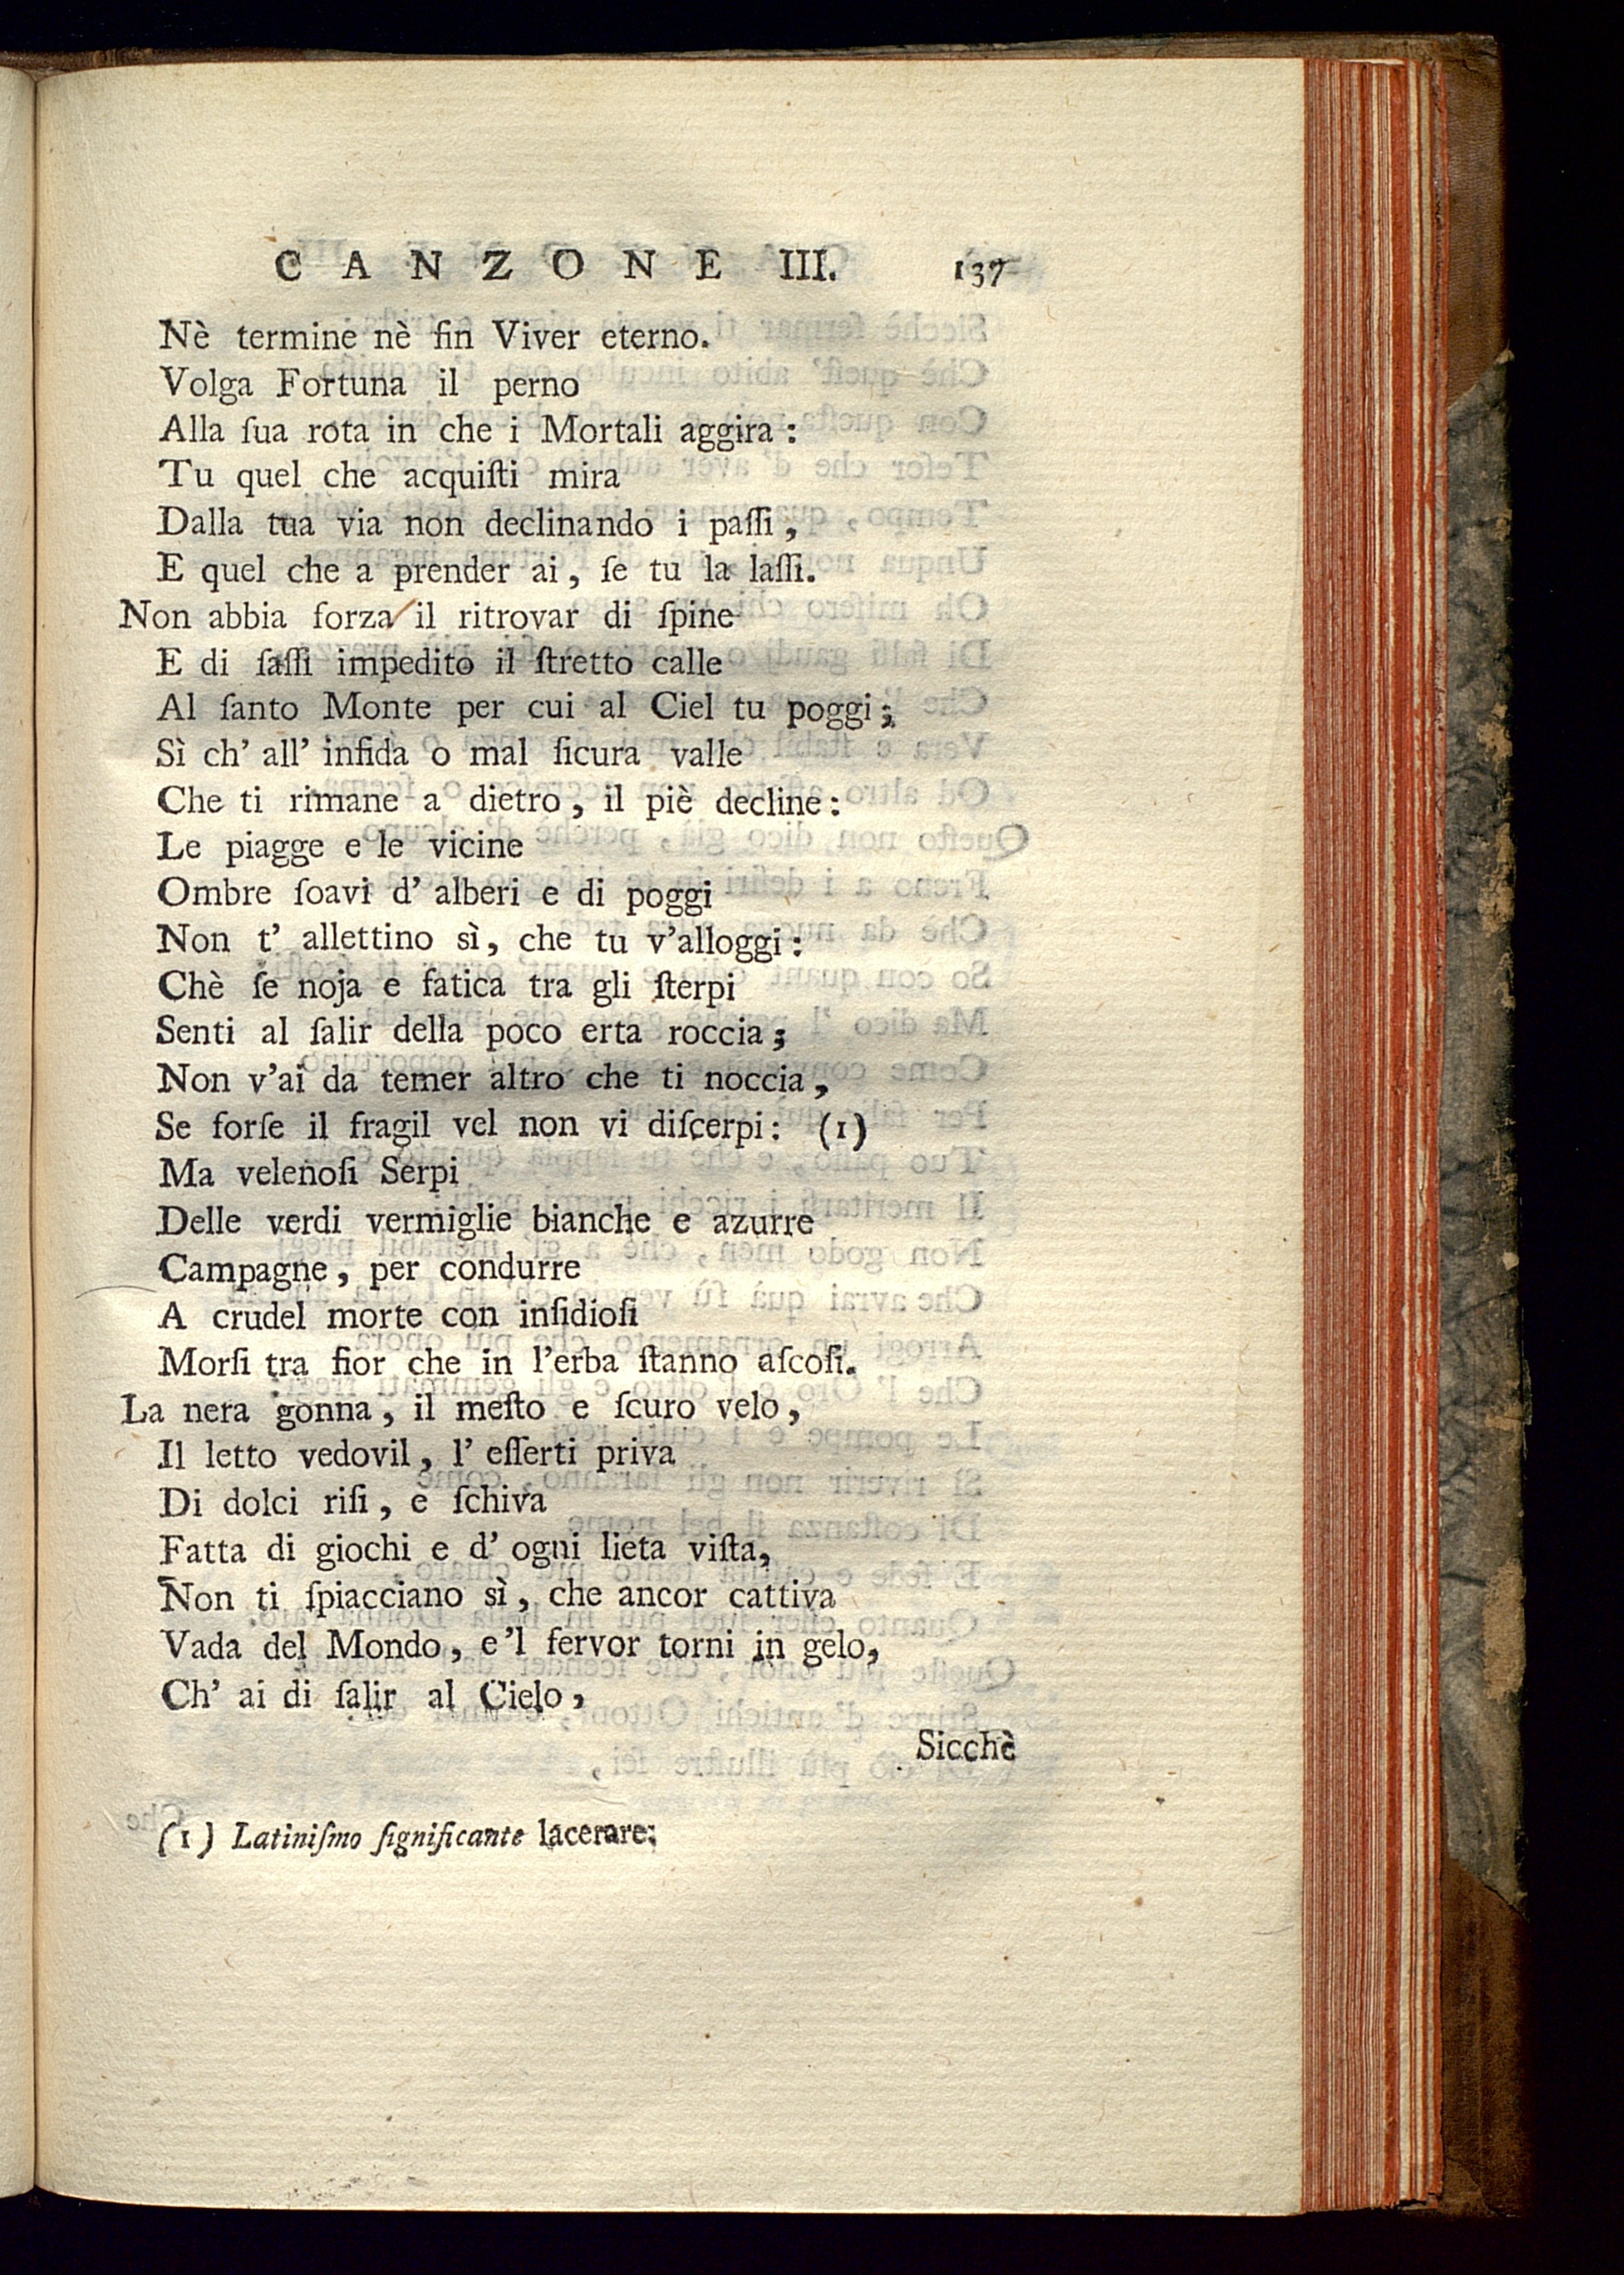 CANZONE III. 137
Nè termine nè fin Viver eterno.
Volga Fortuna il perno
Alla ſua rota in che i Mortali aggira:
Tu quel che acquiſti mira
Dalla tua via non declinando i paſſi,
E quel che a prender ai, ſe tu la laſſi.
Non abbia forza il ritrovar di ſpine
E di ſaſſi impedito il ſtretto calle
Al ſanto Monte per cui al Ciel tu poggi;
Sì ch' all' infida o mal ſicura valle
Che ti rimane a dietro, il piè decline:
Le piagge e le vicine
Ombre ſoavi d' alberi e di poggi
Non t' allettino sì, che tu v'alloggi:
Chè ſe noja e fatica tra gli ſterpi
Senti al ſalir della poco erta roccia;
Non v'ai da temer altro che ti noccia,
Se forſe il fragil vel non vi diſcerpi: (1)
Ma velenoſi Serpi
Delle verdi vermiglie bianche e azurre
Campagne, per condurre
A crudel morte con inſidioſi
Morſi tra fior che in l'erba ſtanno aſcoſi.
La nera gonna, il meſto e ſcuro velo,
Il letto vedovil, l' eſſerti priva
Di dolci riſi, e ſchiva
Fatta di giochi e d' ogni lieta viſta,
Non ti ſpiacciano sì, che ancor cattiva
Vada del Mondo, e 'l fervor torni in gelo,
Ch' ai di ſalir al Cielo,
Sicchè
(1) Latiniſmo ſignificante lacerare: